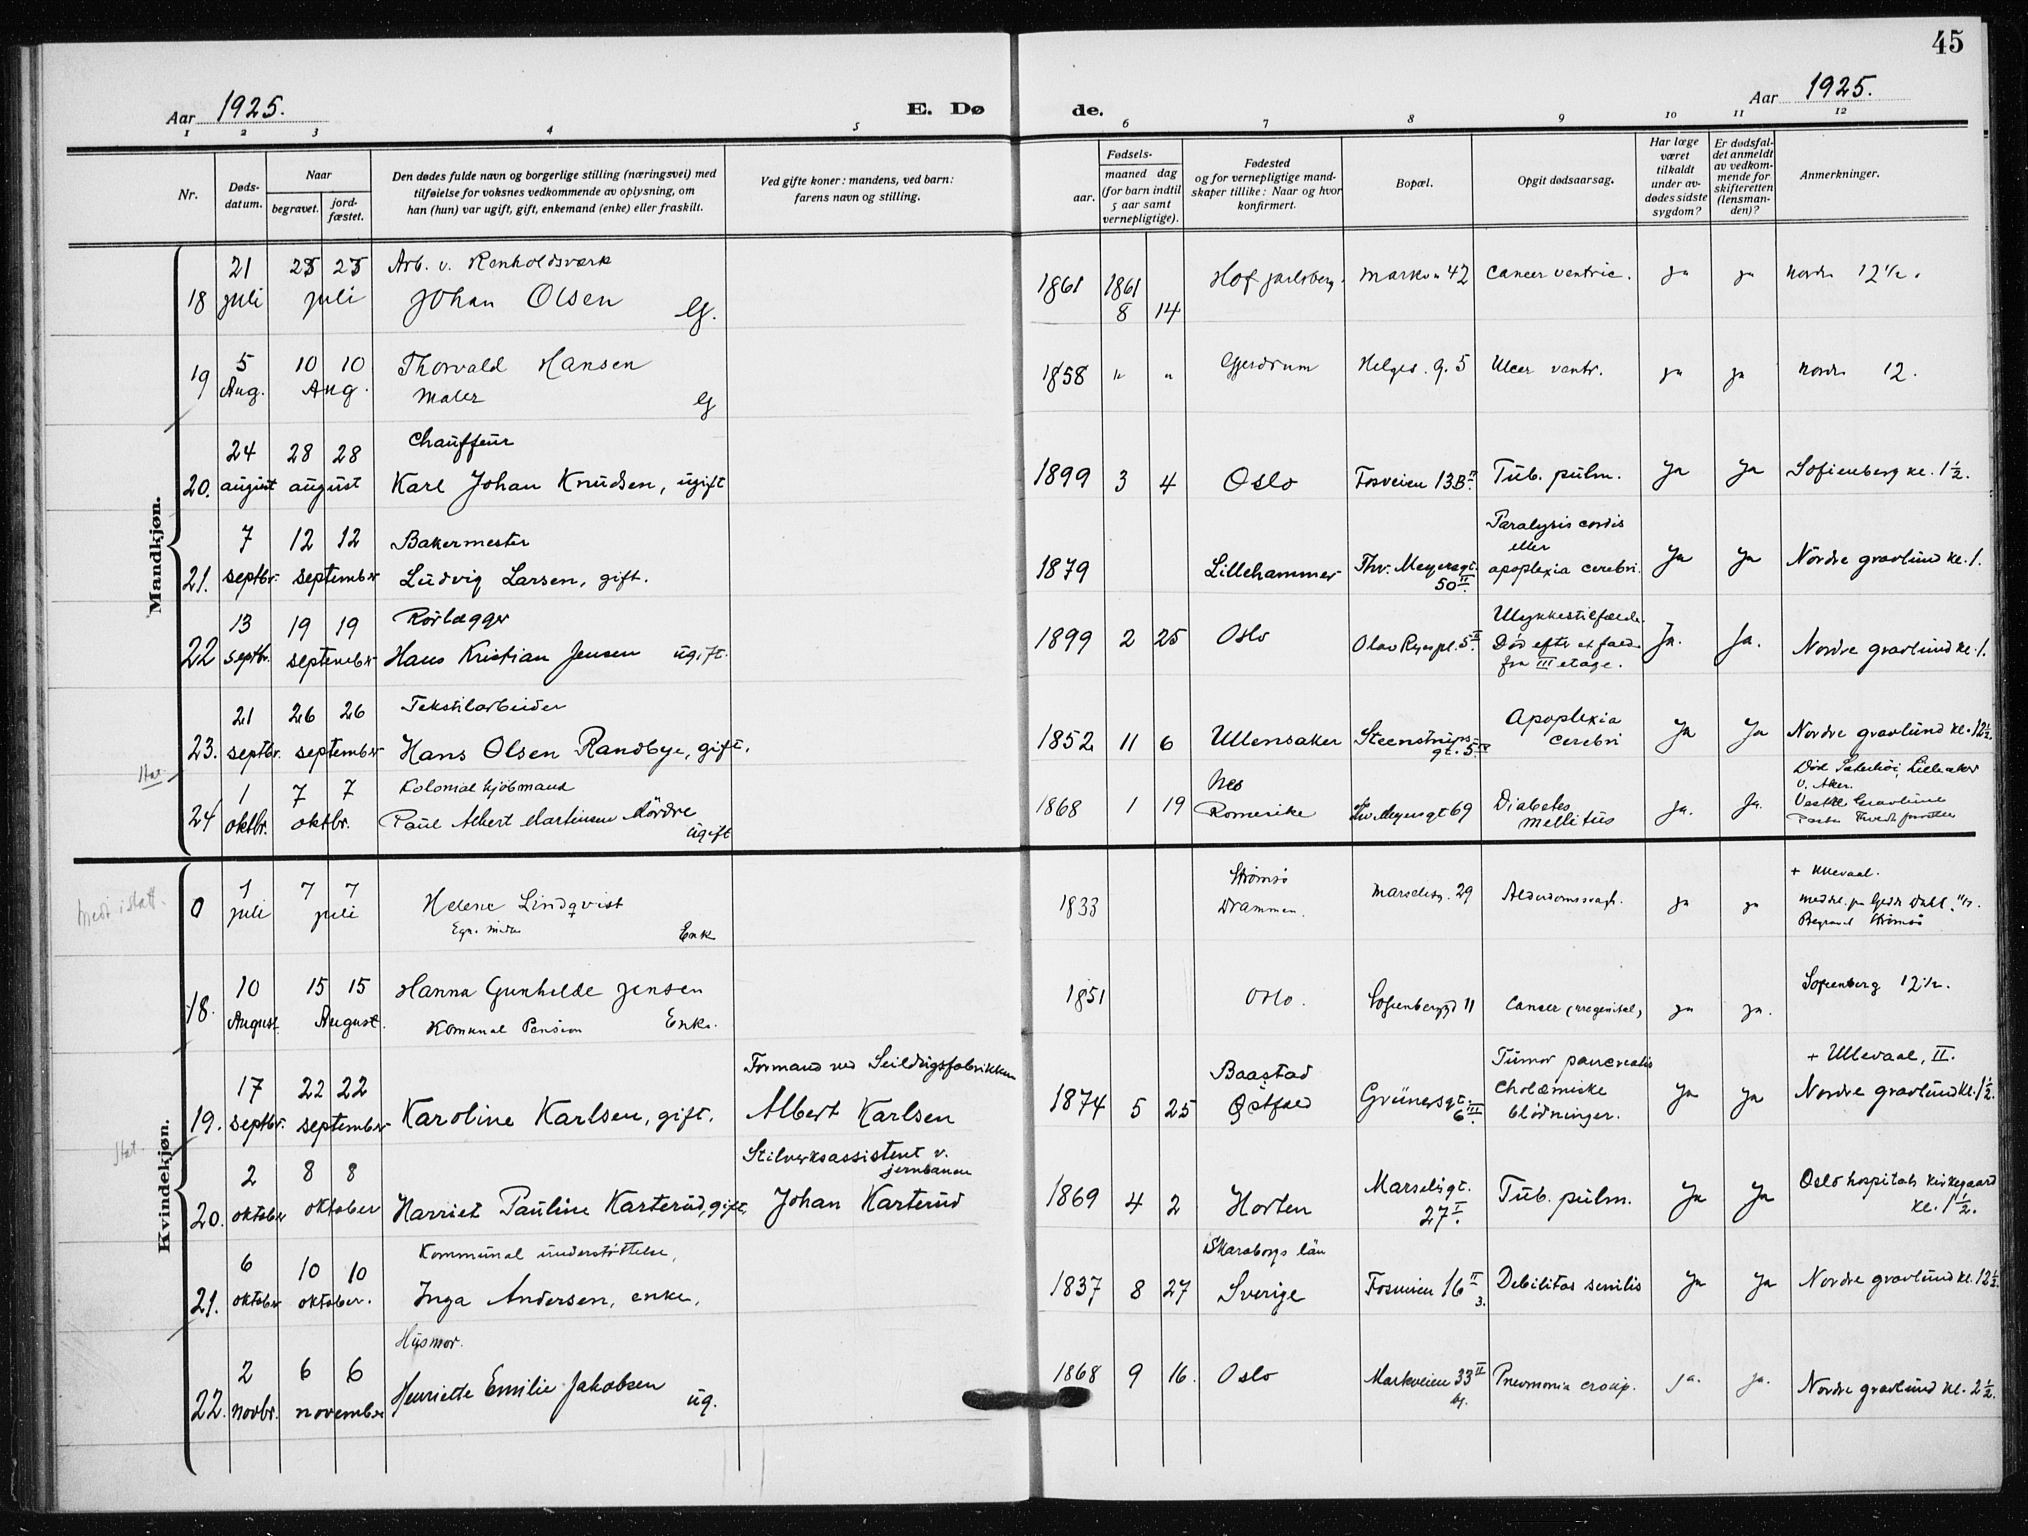 45
Aar 1925.
E. Døde.
Aar 1925.
1 2 3 4 5 6 7 8 9 10 11 12
Nr.
Døds-
datum.
Naar
begravet.
jord-
fæstet.
Den dødes fulde navn og borgerlige stilling (næringsvei) med
tilføielse for voksnes vedkommende av oplysning, om
han (hun) var ugift, gift, enkemand (enke) eller fraskilt.
Ved gifte koner: mandens, ved barn:
farens navn og stilling.
Fødsels-
aar.
maaned dag
(for barn indtil
5 aar samt
vernepligtige).
Fødested
og for vernepligtige mand-
skaper tillike: Naar og hvor
konfirmert.
Bopæl.
Opgit dødsaarsag.
Har læge
været
tilkaldt
under av-
dødes sidste
sygdom?
Er dødsfal-
det anmeldt
av vedkom-
mende for
skifteretten
(lensman-
den)?
Anmerkninger.
Mandkjøn.
18 21 juli 25 25 juli Arb. v. Renholdsværk
Johan Olsen
1861 1861 8 14 Hof Jarlsberg. Markv. 42 Cancer ventric. ja ja Nordre 12½.
19 5 Aug. 10 10 Aug. Thorvald Hansen
Maler
1858 " " Gjerdrum Helges. g. 5 Ulcer ventr. ja ja Nordre 12.
20. 24 august 28 28 august Chauffeur
Karl Johan Knudsen, ugift
1899 3 4 Oslo Fosveien 13B II. Tub. pulm. Ja Ja Sofienberg kl. 1½.
21. 7 septbr. 12 12 september Bakermester
Ludvig Larsen, gift.
1879 Lillehammer Thv. Meyersgt. 50 II. Paralysis cordis
eller
apoplexia cerebri. Ja Ja Nordre gravlund kl. 1.
22 13 septbr. 19 19 september Rørlægger
Hans Kristian Jensen ugift.
1899 2 25 Oslo Olav Ryes pl. 5 II. Ulykkestilfælde.
Død efter et fald
fra III etage. Ja. Ja. Nordre gravlund kl. 1.
23. 21 septbr. 26 26 september Tekstilarbeider
Hans Olsen Randbye, gift.
1852 11 6 Ullensaker Steenstrups-
gt. 5 Apoplexia
cerebri Ja Ja Nordre gravlund kl. 12½.
24 1 oktbr. 7 7 oktbr. Kolonialkjøbmand
Paul Albert Martinsen Mördre
ugift
1868 1 19 Nes
Romerike Thv. Meyersgt 69 Diabetes
mellitus Ja. Ja. Død Lilleaker
v. Aker.
Vestre Gravlund
Kvindekjøn.
0 1 juli 7 7 juli Helene Lindqvist
Egn. midler Enke
1833 Strømsø
Drammen. Marselisg. 29 Alderdomssvagh. ja ja + Ullevaal.
Begravet Strømsø
18. 10 August. 15 15 August. Hanna Gunhilde Jensen
Komunal Pension Enke.
1851 Oslo. Sofienberggd 11 Cancer ja ja. Sofienberg 12½.
19. 17 septbr. 22 22 september Karoline Karlsen, gift.
Formand ved Seildugsfabrikken
Albert Karlsen
1874 5 25 Baastad
Østfold Grünersgt. 6 III. Tumor pancreatis
Cholæmiske
blødninger. Ja Ja + Ullevaal, II.
Nordre gravlund kl. 1½.
20. 2 oktober 8 8 oktober Harriet Pauline Karterud, gift,
Stilverksassistent v.
jernbanen
Johan Karterud
1869 4 2 Horten Marselisgt.
27 I. Tub. pulm. Ja Ja Oslo hospitals kirkegaard
kl. 1½.
21. 6 oktober 10 10 oktober. Kommunal understøttelse,
Inga Andersen, enke,
1837 8 27 Skaraborgs län
Sverige Fosveien 16 II
3. Debilitas senilis Ja Ja Nordre gravlund kl. 12½
22. 2 novbr. 6 6 november Husmor.
Henriette Emilie Jakobsen ug.
1868 9 16. Oslo Markveien 33 II Pneumonia croup. ja. ja. Nordre gravlund kl. 2½.